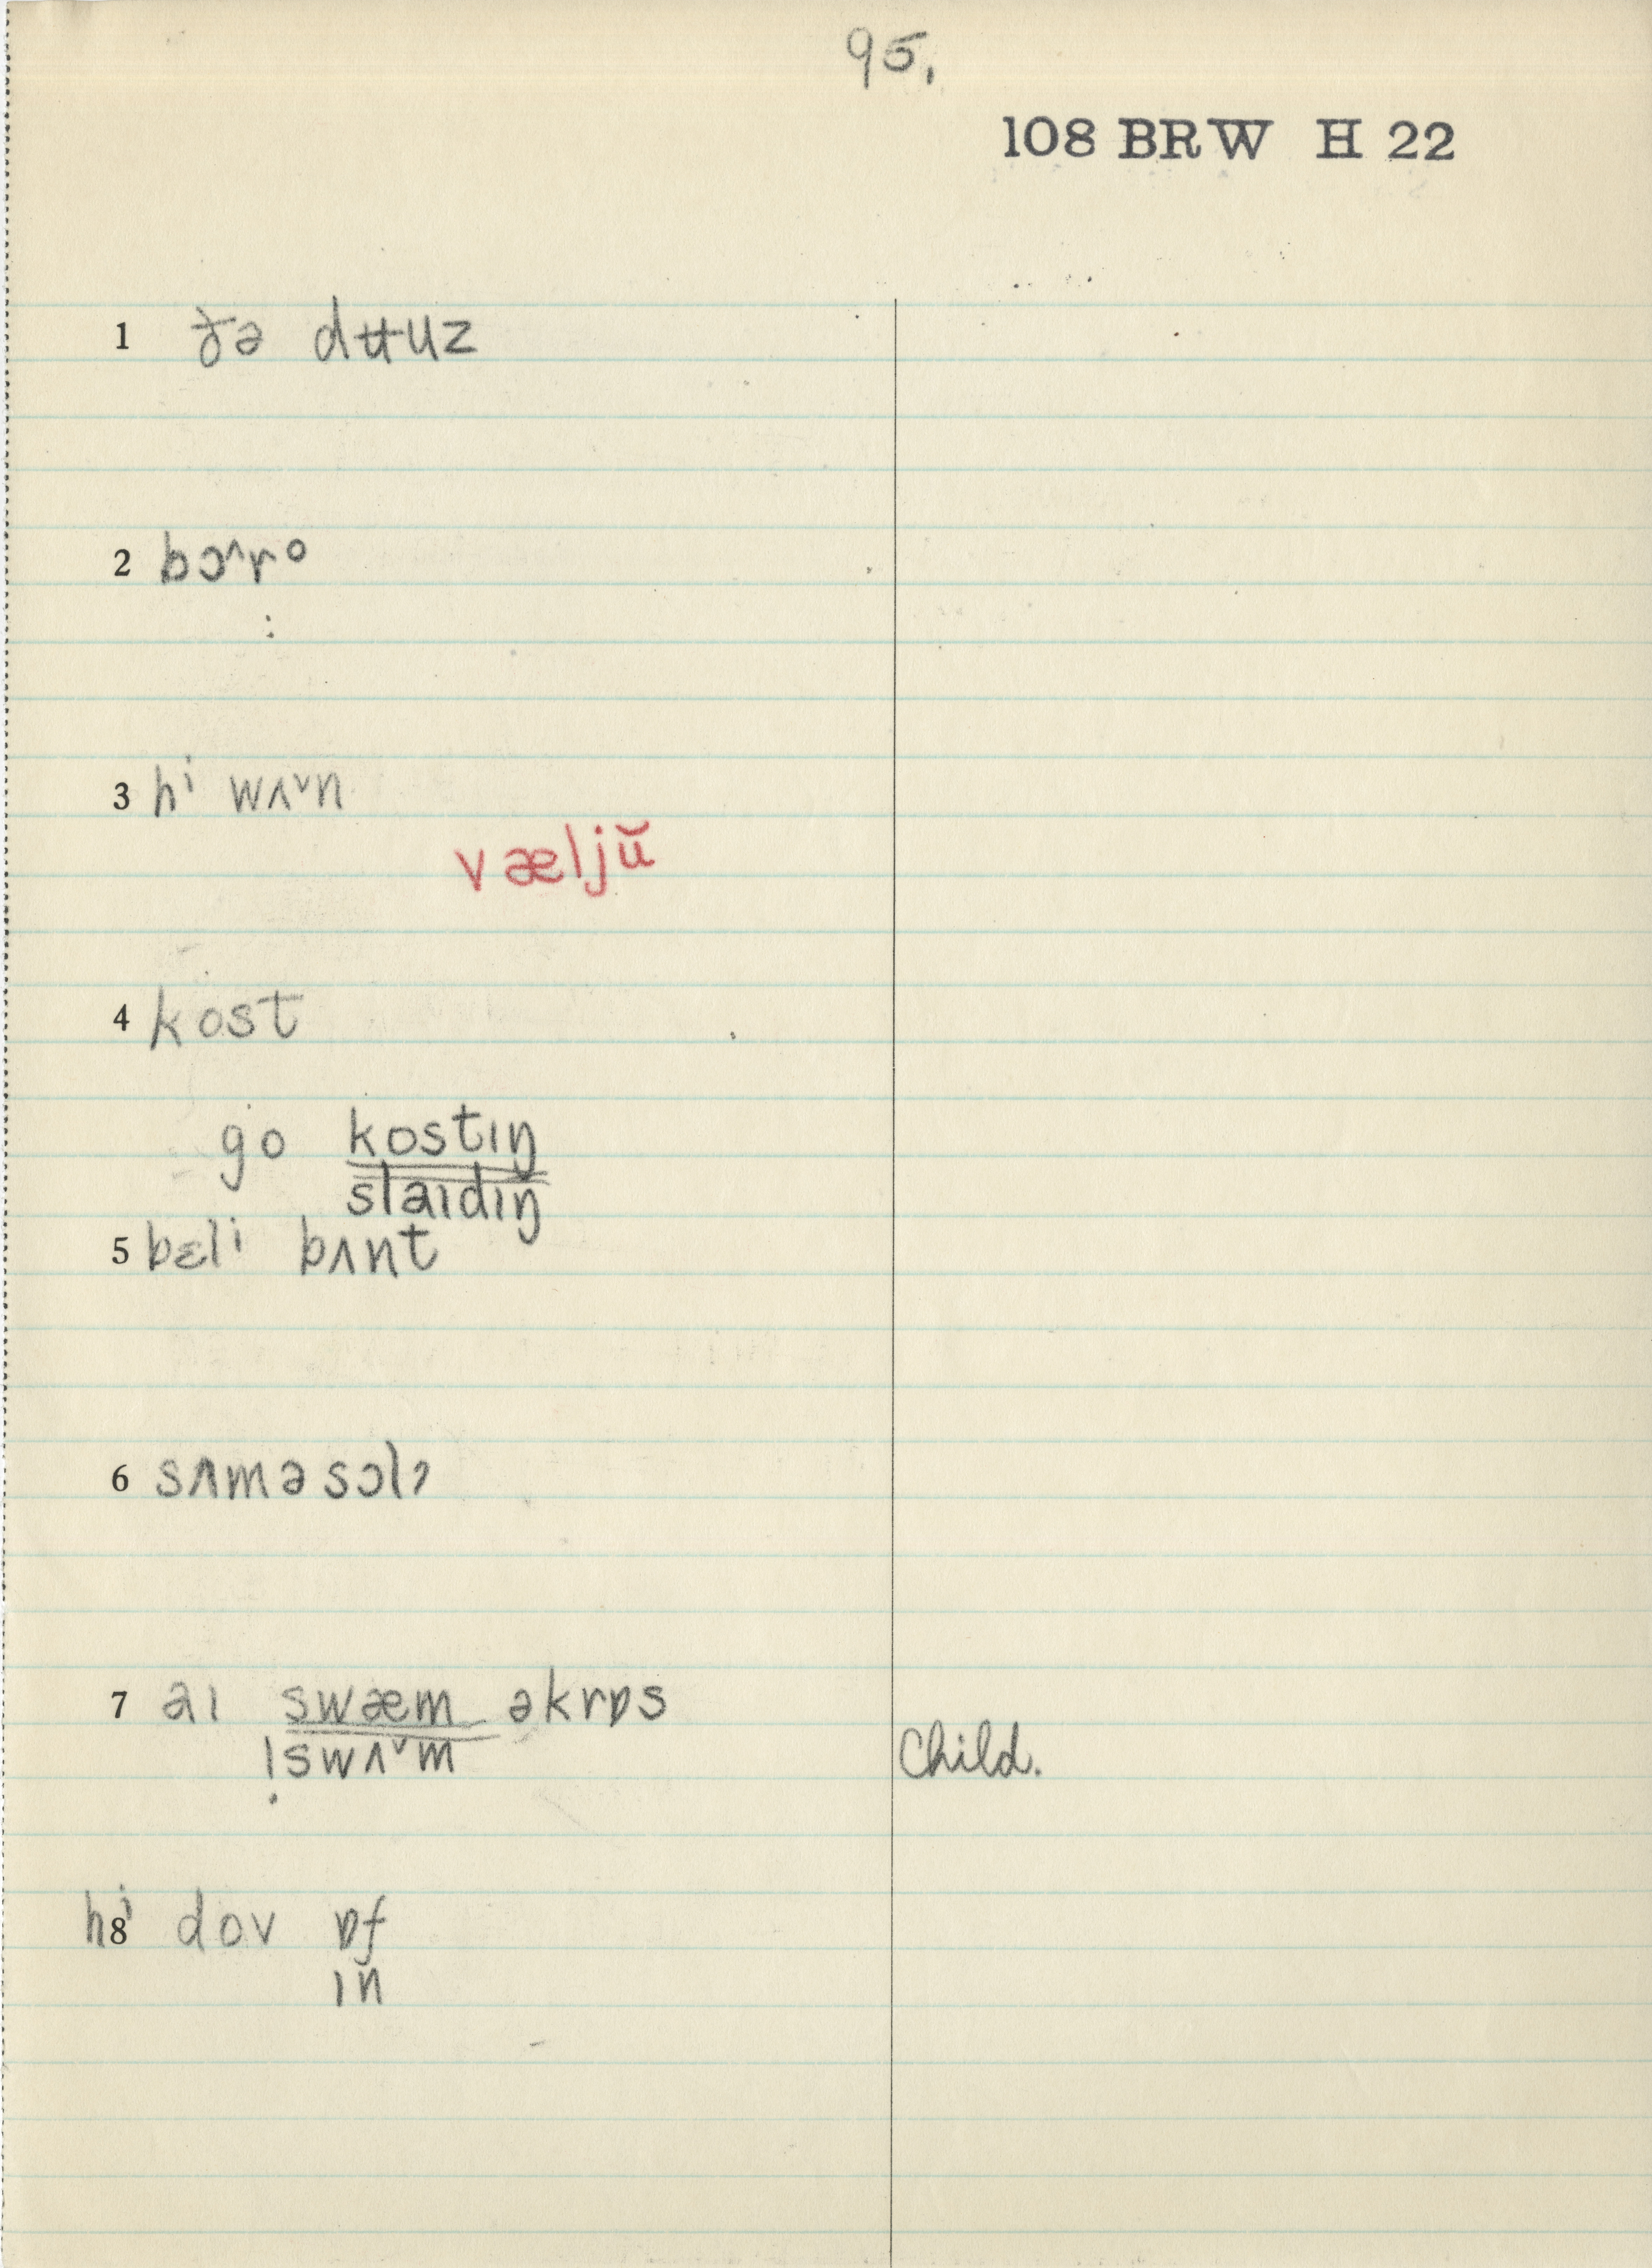 95.
108 BRW H 22
1 ðə dʉuz
2 bɔ^rᵒ
:
3 hⁱ wʌ˅n
væljŭ
4 kost
go kostɪŋ
slaɪdɪŋ
5 bɛlⁱ bʌnt
6 sʌməsɔlɂ
7 aɪ swæm əkrɒs
!swʌ˅m Child.
8 hⁱ dov ɒf
ɪn